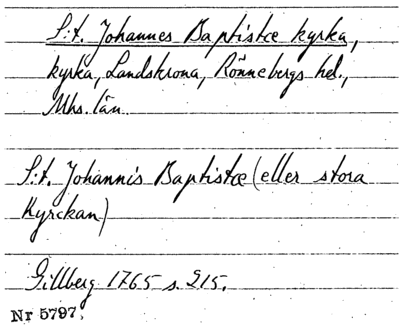 S:t. Johannes Baptistæ kyrka,
kyrka, Landskrona, Rönnebergs hd.,
Mhs. län.
S:t. Johannis Baptistæ (eller stora
Kyrckan)
Gillberg 1765 s. 215.
Nr 5797.